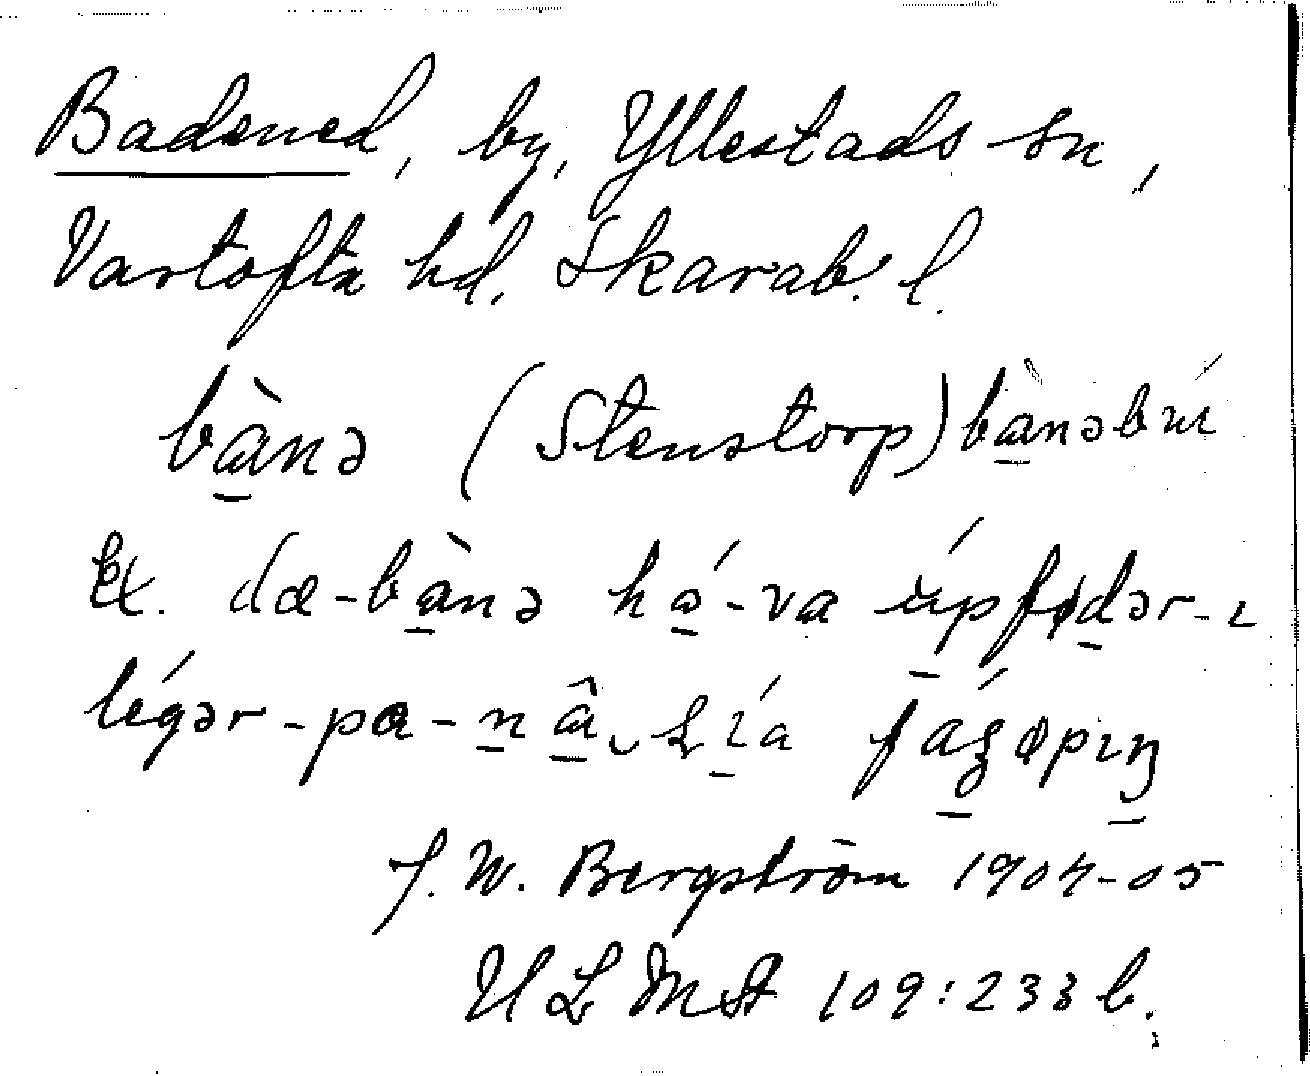 Badened, by, Yllestads sn,
Vartofta hd. Skarab. l.
bànə (Stenstorp) bànəbɯí
Ex. dɑ-bànə hə́-va úpfødər-ɩ
légər-pɑ-nâ ɩ́a fáʒøpɩŋ
J. W. Bergström 1904-05
ULMA 109:233 b.